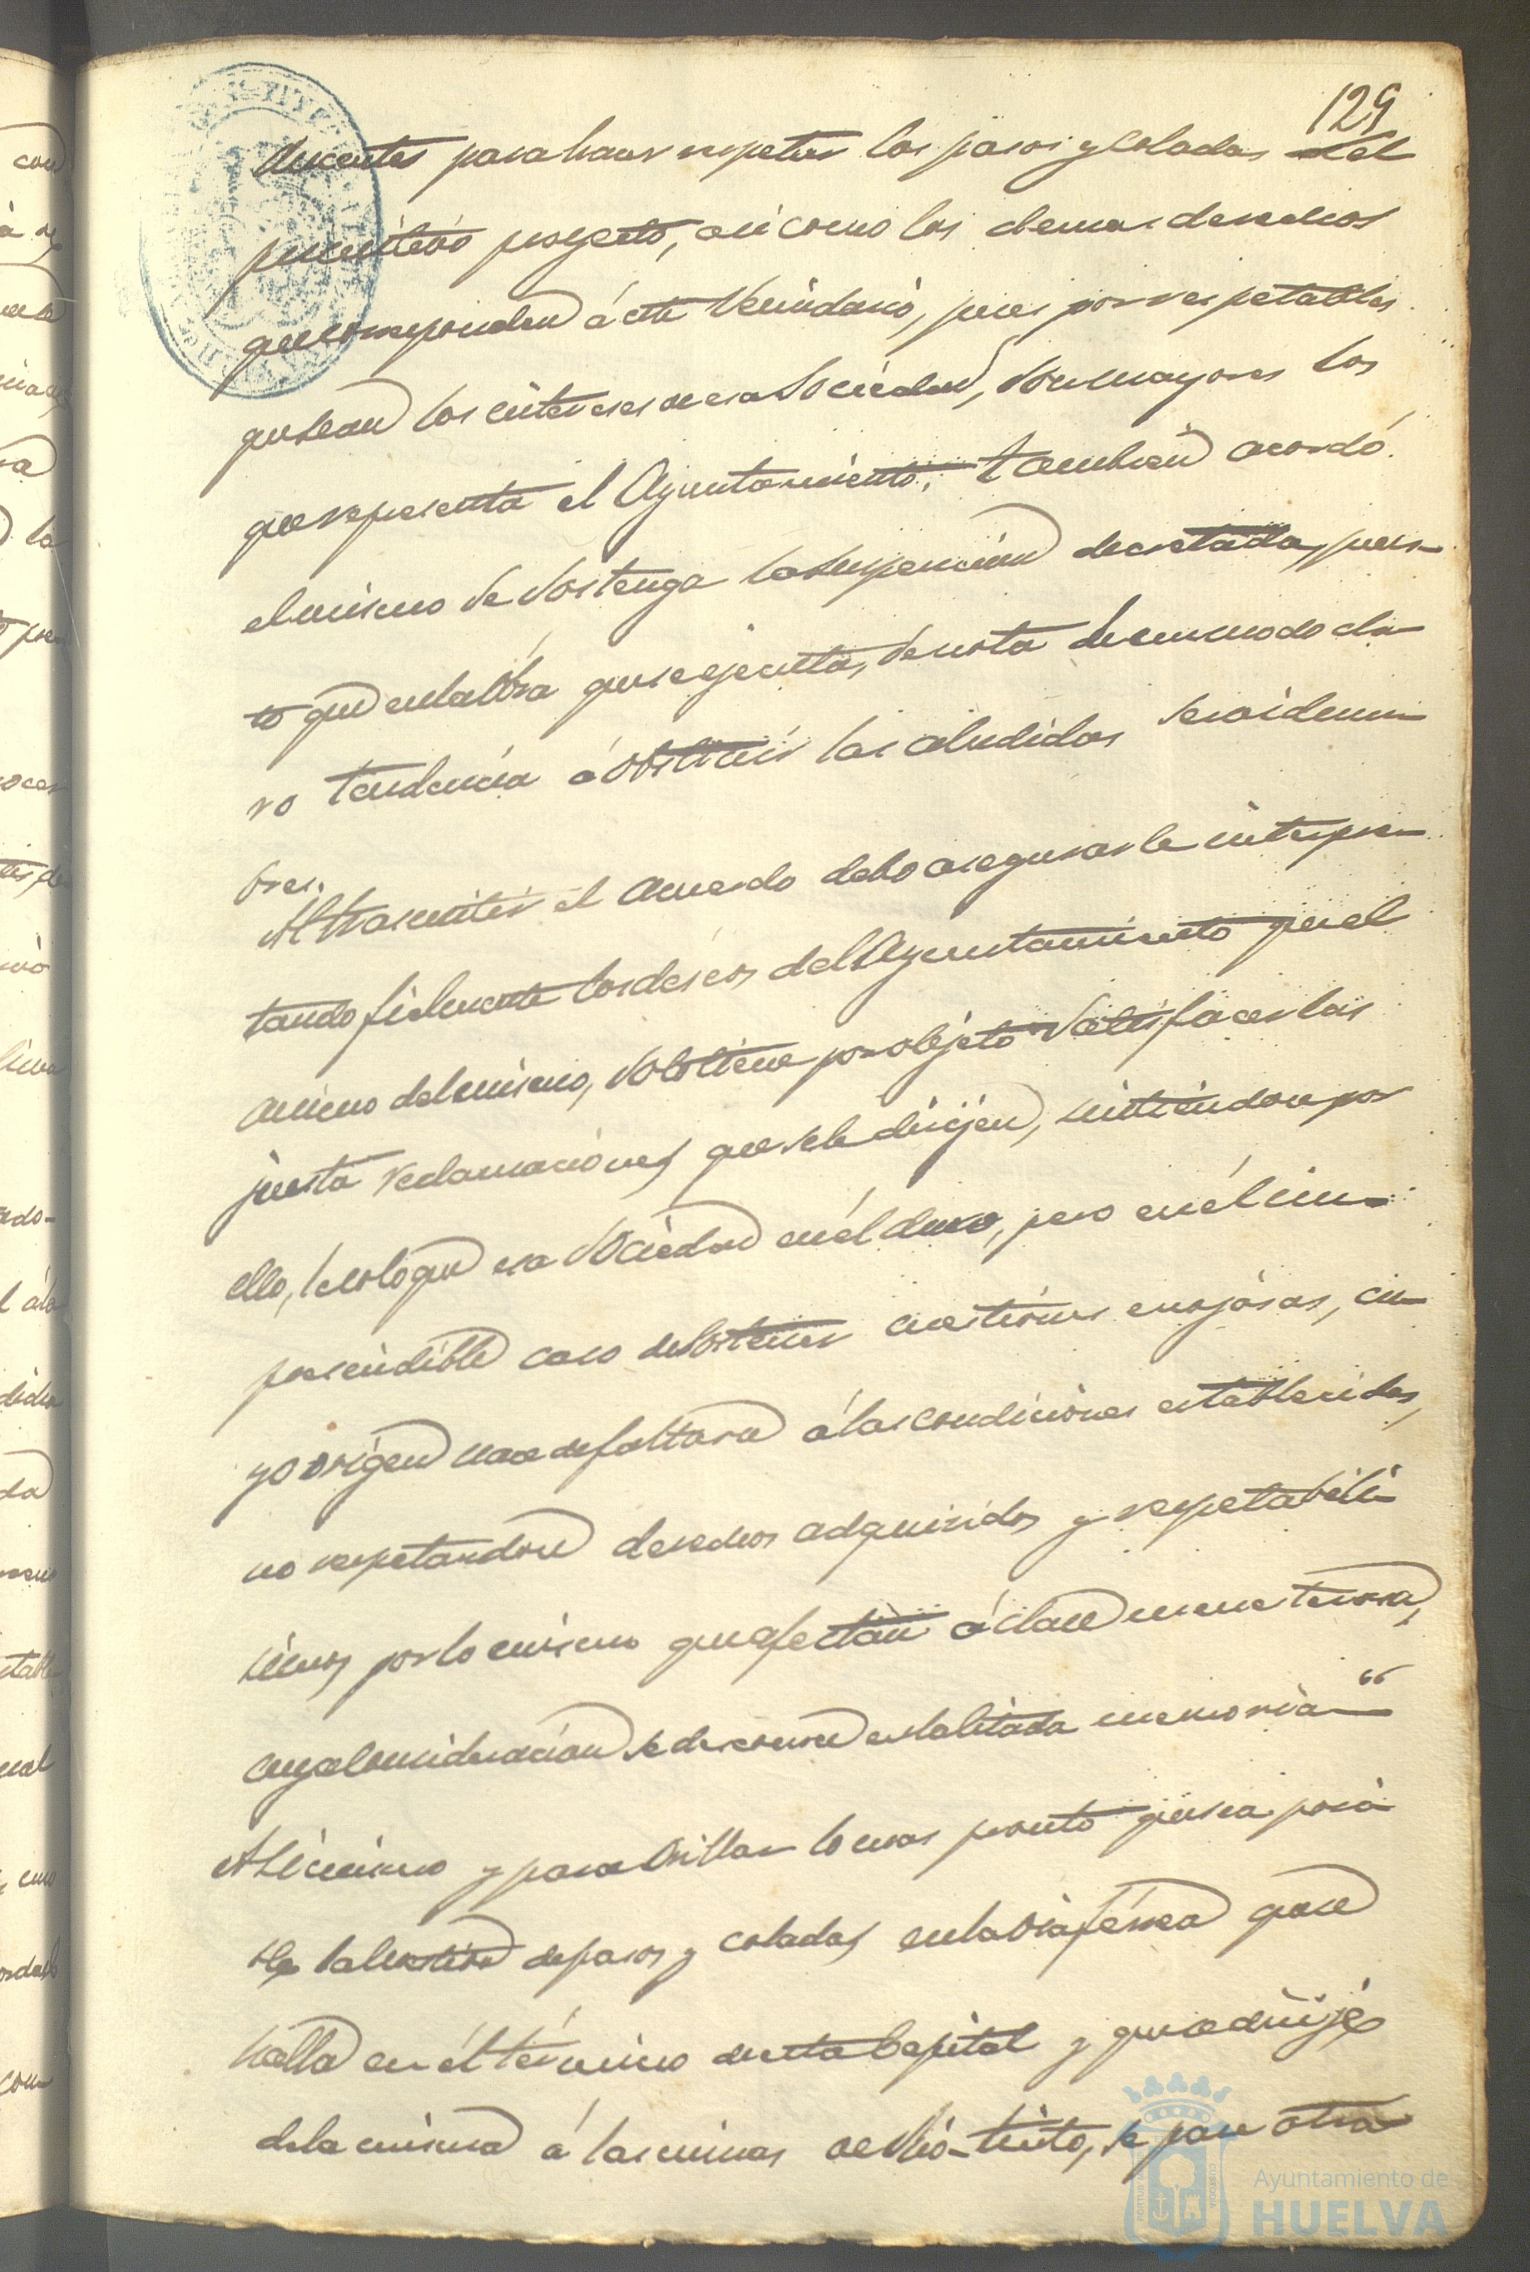 129
ducentes para hacer respetar los pasos y coladas del
primitivo proyecto, asi como los demas derechos
que corresponden á este Vecindario, pues por respetables
que sean los intereses de esa Sociedad, son mayores los
que representa el Ayuntamiento; tambien acordó
el mismo se sostenga la suspension decretada, pues-
to que en la obra que se ejecuta, se nota de un modo cla-
ro tendencia á obstruir las aludidas servidum-
bres.
Al trasmitir el acuerdo debo asegurarle interpre-
tando fielmente los deseos del Ayuntamiento que el
animo del mismo, solo tiene por objeto satisfacer las
justa reclamaciones que se le dirijen, sintiendose por
ello, le coloque esa Sociedad en el duro, pero en él im-
prescindible caso de sostener cuestiones enojosas, cu-
yo origen nace de faltarse á las condiciones establecidas,
no respetandose derechos adquiridos y respetabili-
simos por lo mismo que afectan á clase menesterosa,
cuya consideracion se desconoce en la litada memoria"
Asi mismo y para orillar lo mas pronto que sea posi-
ble la cuestion de pasos y coladas en la via férrea que se
halla en él término de esta Capital y que se dirije
de la misma á las minas de Rio-tinto, se pase otra
Ayuntamiento de
HUELVA